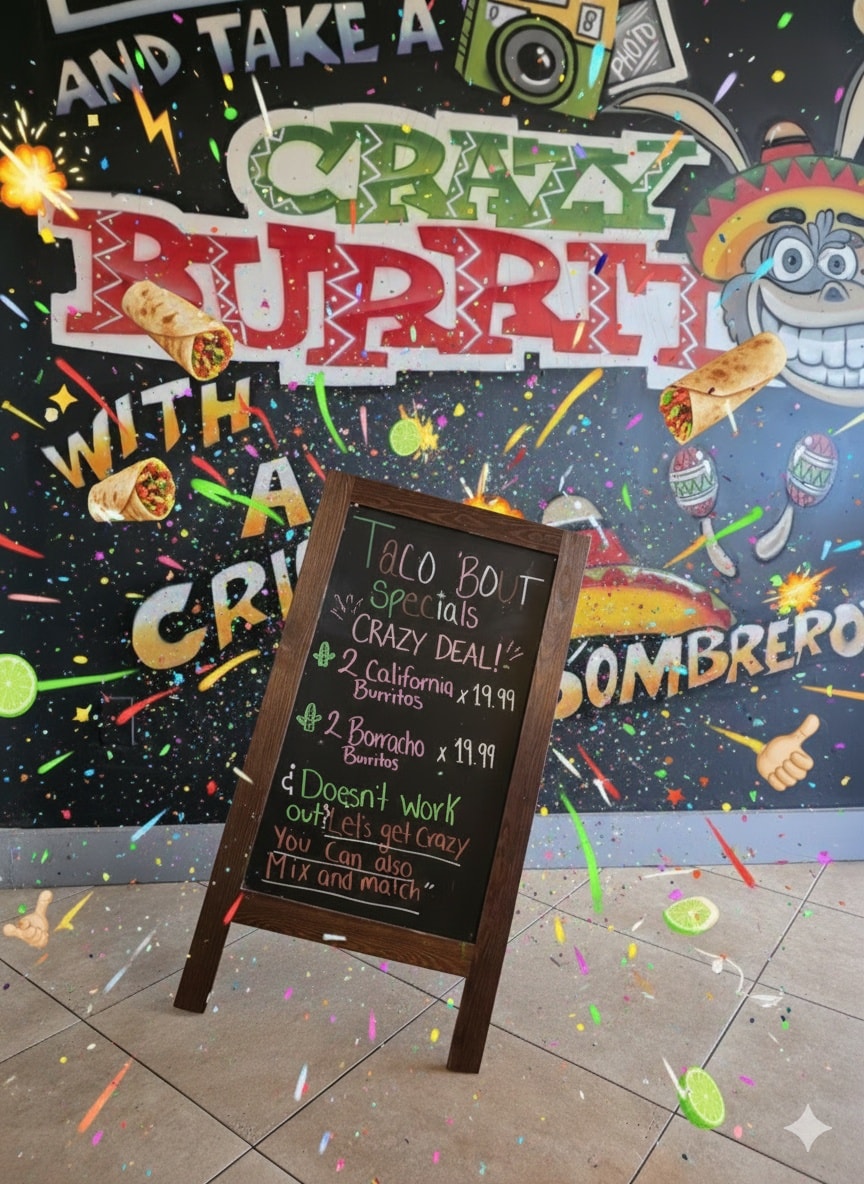 AND TAKE A
PHOTO
CRAZY
BURRIT
WITH
A
CRI
SOMBRERO
Taco 'BOUT
specials
CRAZY DEAL!
2 California
Burritos x 19.99
2 Borracho
Burritos x 19.99
& Doesn't work
out? Let's get Crazy
You Can also
Mix and match"